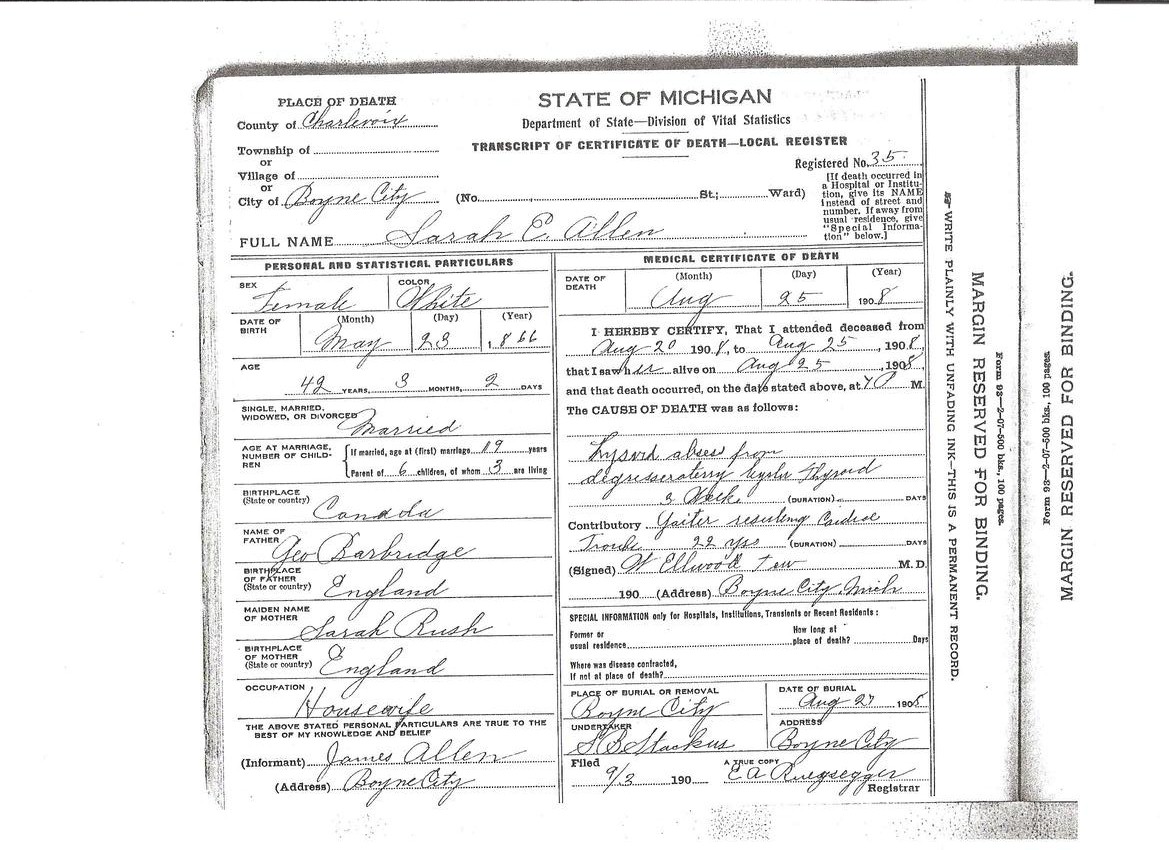 PLACE OF DEATH
County of Charlevoix
Township of
or
Village of
or
City of Boyne City
STATE OF MICHIGAN
Department of State—Division of Vital Statistics
TRANSCRIPT OF CERTIFICATE OF DEATH—LOCAL REGISTER
Registered No. 35
(No. St.; Ward)
[If death occurred in
a Hospital or Institu-
tion, give its NAME
instead of street and
number. If away from
usual residence, give
"Special Informa-
tion" below.]
FULL NAME Sarah E. Allen
PERSONAL AND STATISTICAL PARTICULARS
SEX Female
COLOR White
DATE OF BIRTH (Month) (Day) (Year)
May 23 1866
AGE
42 YEARS, 3 MONTHS, 2 DAYS
SINGLE, MARRIED,
WIDOWED, OR DIVORCED Married
AGE AT MARRIAGE,
NUMBER OF CHILD-
REN
If married, age at (first) marriage 19 years
Parent of 6 children, of whom 3 are living
BIRTHPLACE
(State or country) Canada
NAME OF
FATHER Geo Barbridge
BIRTHPLACE
OF FATHER
(State or country) England
MAIDEN NAME
OF MOTHER Sarah Rush
BIRTHPLACE
OF MOTHER
(State or country) England
OCCUPATION
Housewife
THE ABOVE STATED PERSONAL PARTICULARS ARE TRUE TO THE
BEST OF MY KNOWLEDGE AND BELIEF
(Informant) James Allen
(Address) Boyne City
MEDICAL CERTIFICATE OF DEATH
DATE OF DEATH (Month) (Day) (Year)
Aug 25 1908
I HEREBY CERTIFY, That I attended deceased from
Aug 20 1908, to Aug 25, 1908,
that I saw her alive on Aug 25, 1908,
and that death occurred, on the date stated above, at M.
The CAUSE OF DEATH was as follows:
from
Thyroid
3 Week (DURATION) DAYS
Contributory Goiter
22 yrs (DURATION) DAYS
(Signed) W Ellwood Tew M. D.
190 (Address) Boyne City Mich
SPECIAL INFORMATION only for Hospitals, Institutions, Transients or Recent Residents:
Former or
usual residence
How long at
place of death? Days
Where was disease contracted,
If not at place of death?
PLACE OF BURIAL OR REMOVAL
Boyne City
DATE OF BURIAL
Aug 27 1908
UNDERTAKER
S B Stackus
ADDRESS
Boyne City
Filed
9/3 190
A TRUE COPY
E A Ruegsegger
Registrar
WRITE PLAINLY WITH UNFADING INK—THIS IS A PERMANENT RECORD.
MARGIN RESERVED FOR BINDING.
Form 93—2-07-500 bks., 100 pages.
Form 93—2-07-500 bks., 100 pages.
MARGIN RESERVED FOR BINDING.